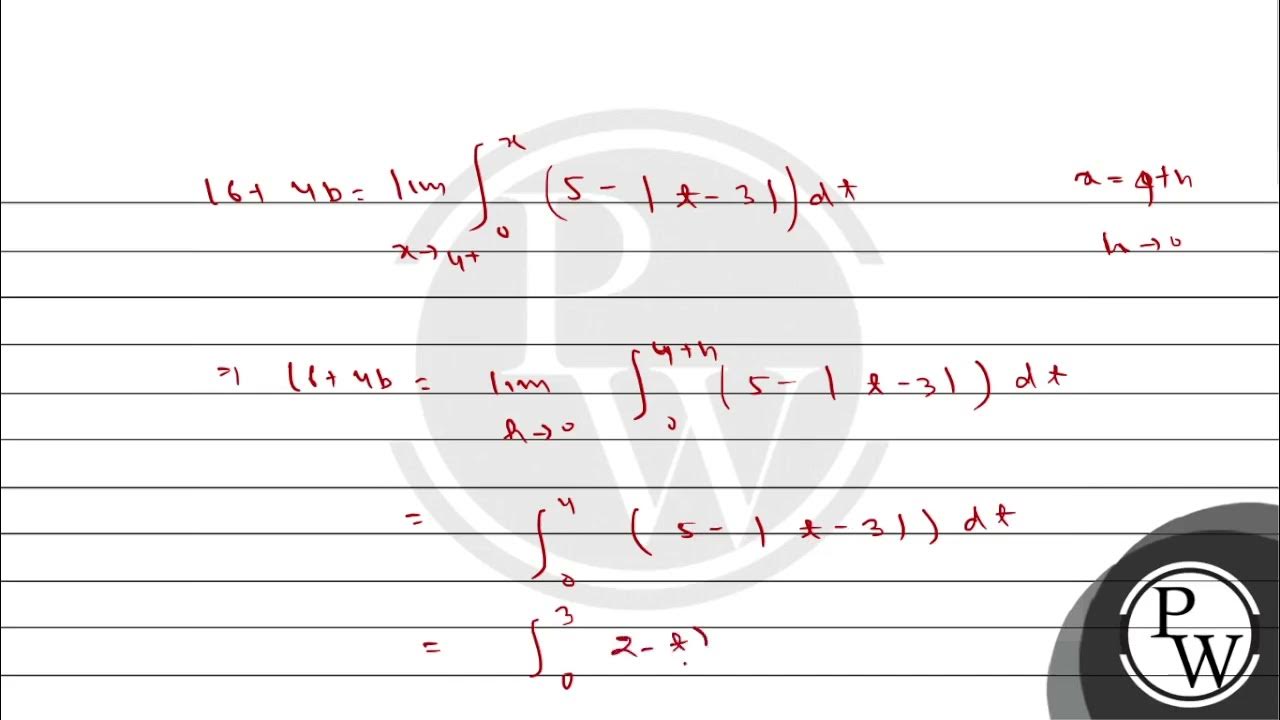 16 + 4b = lim x→4+ ∫₀ˣ (5 - |t - 3|) dt
x = 4+h
h → 0
⇒ 16 + 4b = lim h→0 ∫₀⁴⁺ʰ (5 - |t - 3|) dt
= ∫₀⁴ (5 - |t - 3|) dt
= ∫₀³ 2 - t)
P
W
P
W